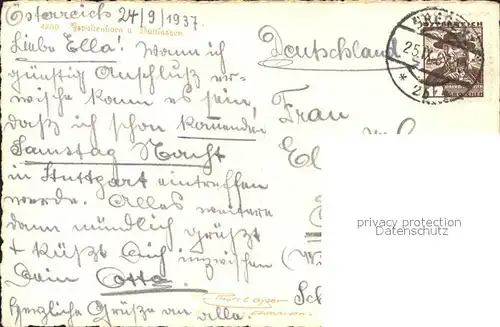 Österreich 24/9/1937.
Liebe Ella! Wenn ich
günstig Anschluß er-
wische kann es sein,
daß ich schon kommenden
Samstag Nacht
in Stuttgart eintreffen
werde. Alles weitere
dann mündlich grüßt
+ küßt Dich inzwischen
Dein Otto.
Herzliche Grüße an alle.
Deutschland
Frau
El
Sch
ÖSTERREICH
privacy protection
Datenschutz